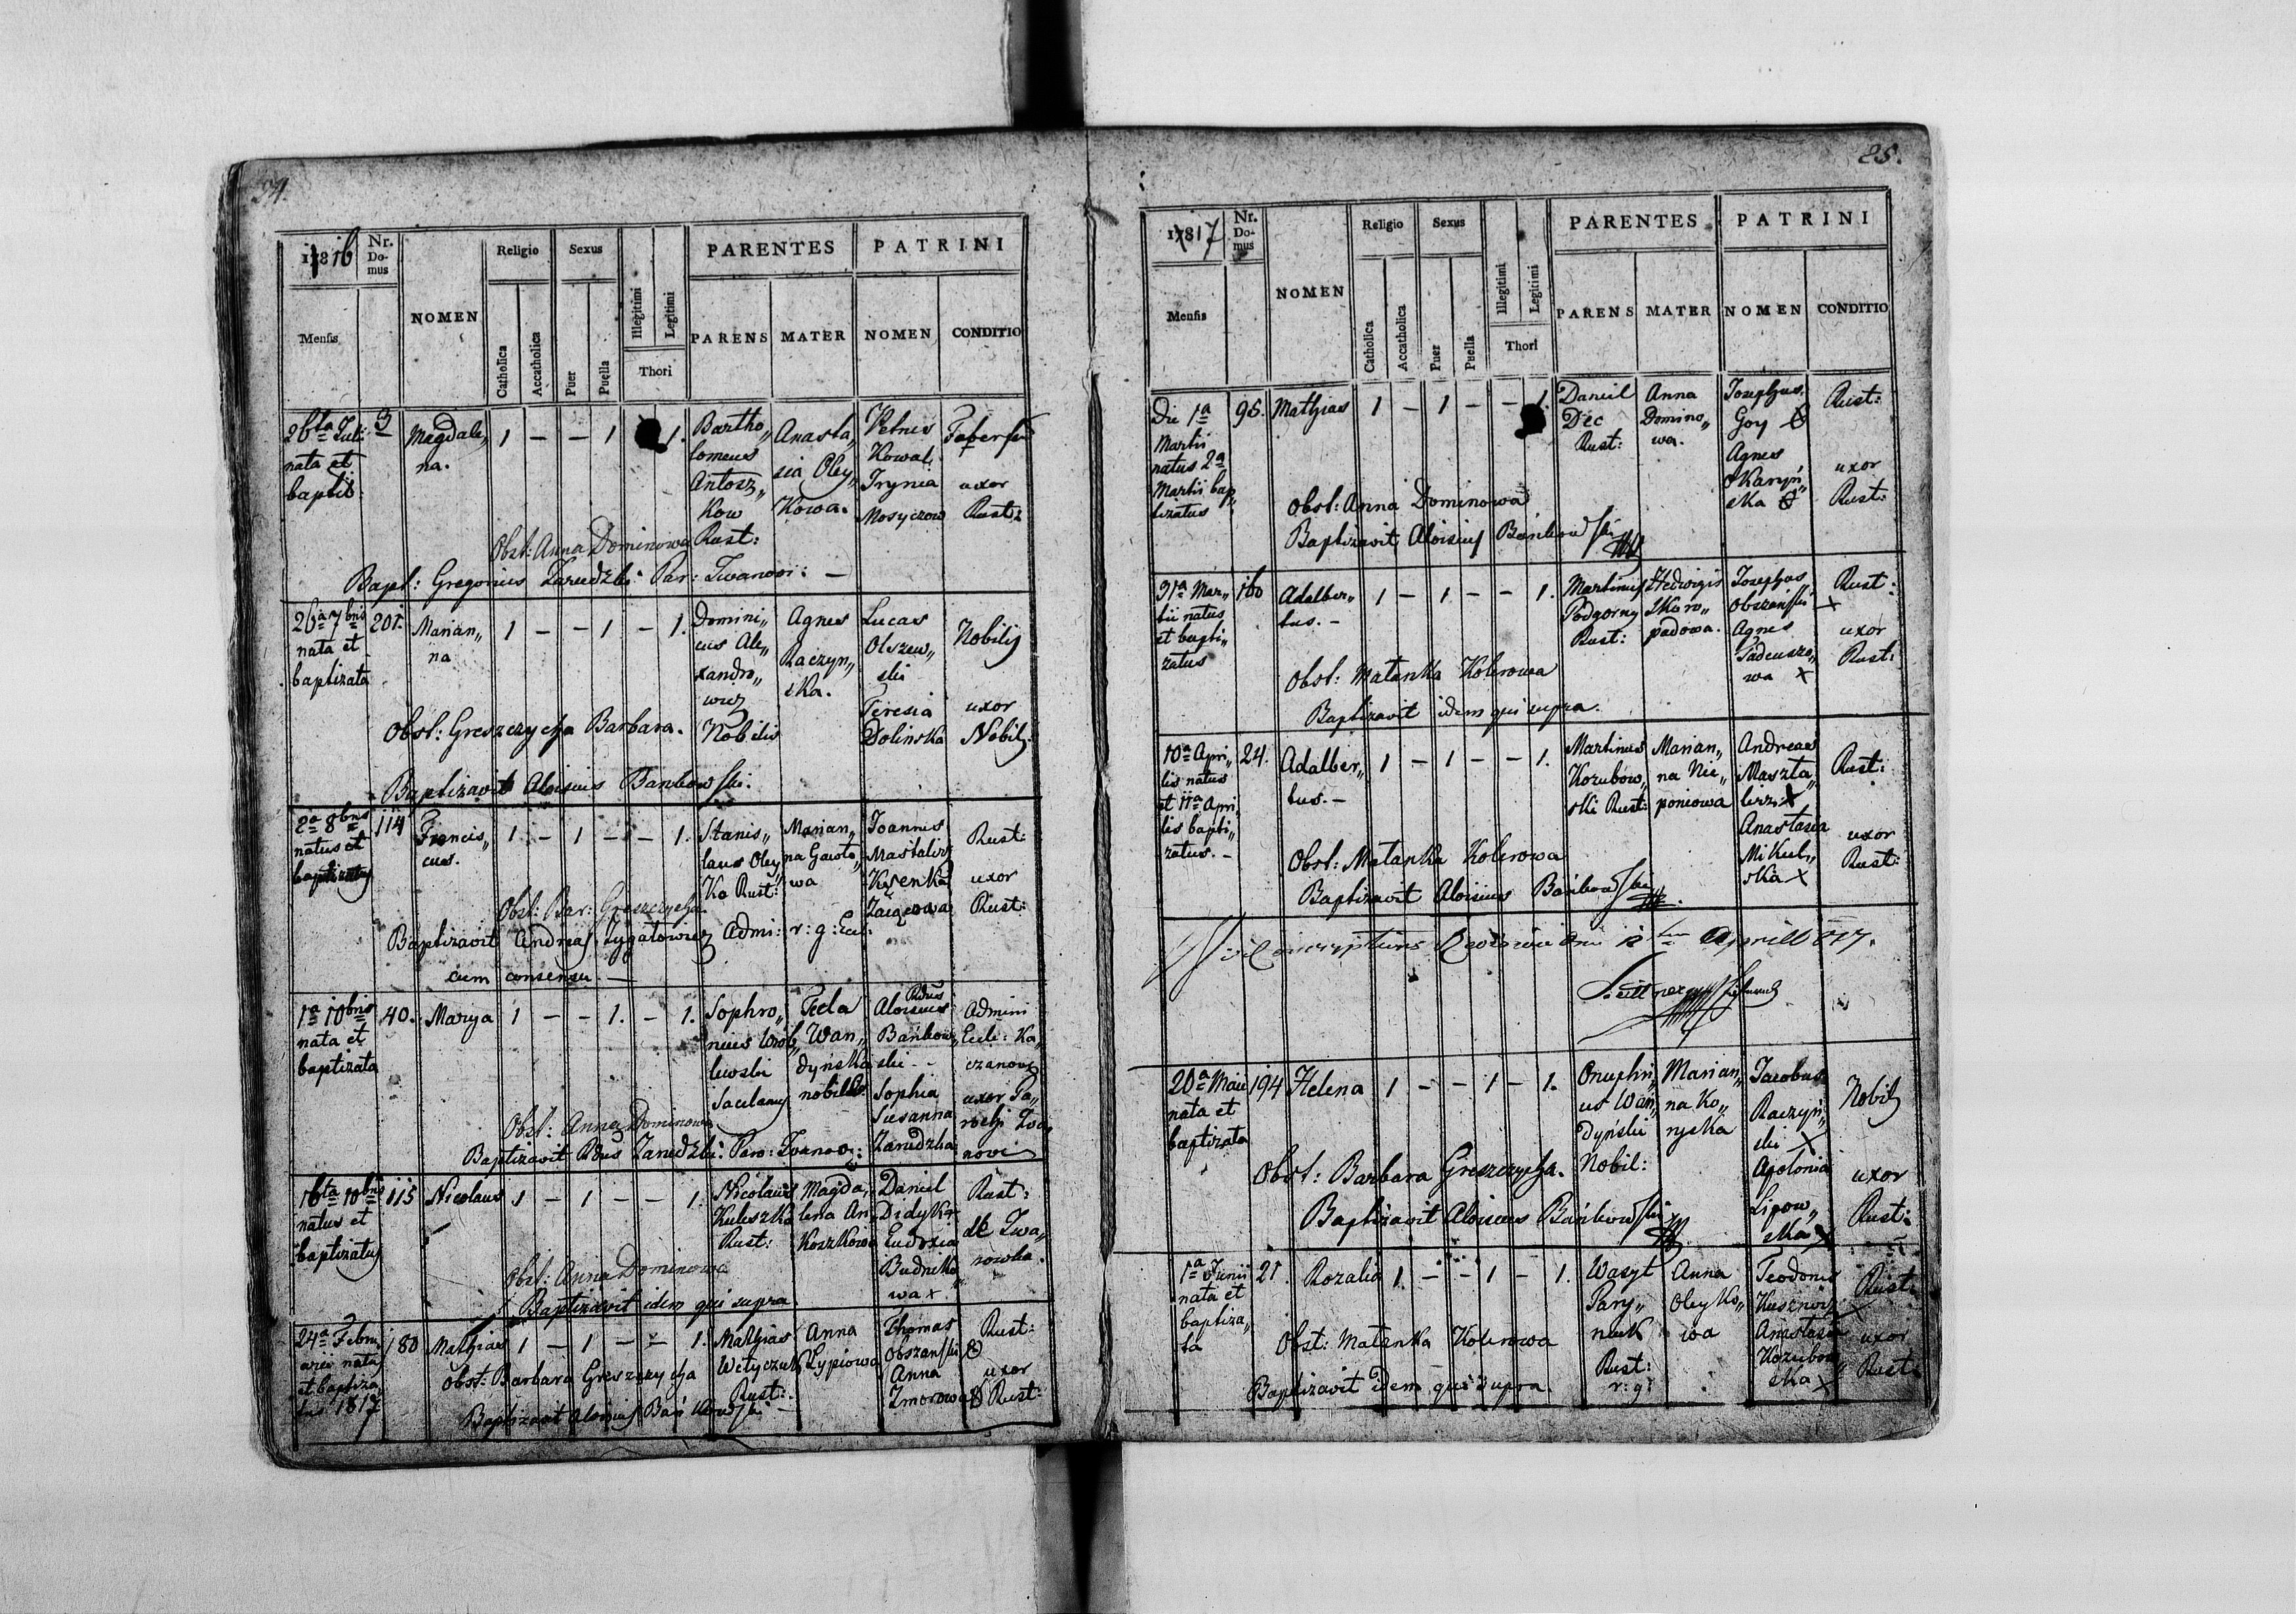 24.
1816
Nr. Domus
NOMEN
Religio
Sexus
PARENTES
PATRINI
Mensis
Catholica
Accatholica
Puer
Puella
Illegitimi
Legitimi
Thori
PARENS
MATER
NOMEN
CONDITIO
26ta Juli: nata et baptis:
3
Magdale„
na.
1 — — 1 1.
Bartho„
lomeus
Antosz„
kow
Rust:
Anasta„
sia Oley„
kowa.
Petrus
Kowal
Irynia
Mosyczow
Faber
uxor
Rust:
Obst: Anna Dominowa
Bapt: Gregorius Zarudzki Par: Iwanov: —
26a 7bris
nata et
baptizata
201.
Marian„
na
1 — — 1 — 1.
Domini„
cus Ale„
xandro„
wicz
Nobilis
Agnes
Raczyn„
ska.
Lucas
Olszew„
ski
Teresia
Dolinska
Nobilis
uxor
Nobil:
Obst: Greszczycha Barbara.
Baptizavit Aloisius Bańkowski.
2a 8bris
natus et
baptizatus
114
Francis„
cus.
1 — 1 — — 1.
Stanis„
laus Oley„
ka Rust:
Marian„
na Gawło„
wa
Joannes
Mastalirz
Ksenka
Rust:
uxor
Rust:
Obst: Bar: Greszczycha
Baptizavit Andreas Zygatowicz Admi: r: g: Ecl:
cum consensu. —
1a 10bris
nata et
baptizata
40.
Marya
1 — — 1. — 1.
Sophro„
nius Wrób„
lewski
Tecla
Wan„
dyńska
nobiles
Rdus
Aloisius
Bańkow„
ski —
Sophia
Susanna
Zarudzka
Admini
Eccle: Ka„
czanov
uxor Pa„
rochi Iwa„
novi
Obst: Anna Dominowa
Baptizavit Rdus Zarudzki Paro: Iwanov:
16ta 10bris
natus et
baptizatus
115
Nicolaus
1 — 1 — — 1.
Nicolaus
Kuleszka
Rust:
Magda„
lena An„
koszkowa
Daniel
Didyk
Eudoxia
Budnika„
wa x
Rust:
de Iwa„
nowka.
Obst: Anna Dominowa
Baptizavit idem qui supra
24a Febru
arii natus
et baptiza„
tus 1817
180
Mathias
1 — 1 — — 1.
Mathias
Wełyczuk
Rust:
Anna
Łypiowa
Thomas
Obszański
Anna
Zmorowa
Rust:
uxor
Rust:
Obst: Barbara Greszczycha
Baptizavit Aloisius Bańkowski —
25.
1817
Nr. Domus
NOMEN
Religio
Sexus
PARENTES
PATRINI
Mensis
Catholica
Accatholica
Puer
Puella
Illegitimi
Legitimi
Thori
PARENS
MATER
NOMEN
CONDITIO
Die 1a
Martii
natus 2a
Martii bap„
tizatus
95.
Mathias
1 — 1 — — 1.
Daniel
Dec
Rust:
Anna
Domino„
wa.
Josephus
Goy
Agnes
Skaryń„
ska
Rust:
uxor
Rust:
Obst: Anna Dominowa
Baptizavit Aloisius Bańkowski
31a Mar„
tii natus
et bapti„
zatus
160
Adalber„
tus. —
1 — 1 — — 1.
Martinus
Podgorny
Rust:
Hedwigis
Skaw„
padowa.
Josephus
Obszański
Agnes
Tadeuszo„
wa x
Rust:
uxor
Rust:
Obst: Matanka Kolerowa
Baptizavit idem qui supra.
10a Apri„
lis natus
et 11a Apri„
lis bapti„
zatus. —
24.
Adalber„
tus. —
1 — 1 — — 1.
Martinus
Kozubow„
ski Rust:
Marian„
na Nie„
poniowa
Andreas
Maszta„
lirz x
Anastasia
Mikul„
ska x
Rust:
uxor
Rust:
Obst: Matanka Kolerowa
Baptizavit Aloisius Bańkowski
Aprill 817.
20a Maii
nata et
baptizata
194
Helena
1 — — 1 — 1.
Onuphri„
us Wań„
dyński
Nobil:
Marian„
na Ko„
ryska
Jacobus
Raczyń„
ski x
Apolonia
Lipow„
ska x
Nobil
uxor
Rust:
Obst: Barbara Greszczycha.
Baptizavit Aloisius Bańkowski
1a Junii
nata et
baptiza„
ta
21.
Rozalia
1. — — 1 — 1.
Wasyl
Pary„
nuk
Rust:
r: g:
Anna
Oleyko„
wa
Teodorus
Kusznirz
Anastasia
Kozubow„
ska x
Rust:
uxor
Rust:
Obst: Matanka Kolerowa
Baptizavit idem qui supra.